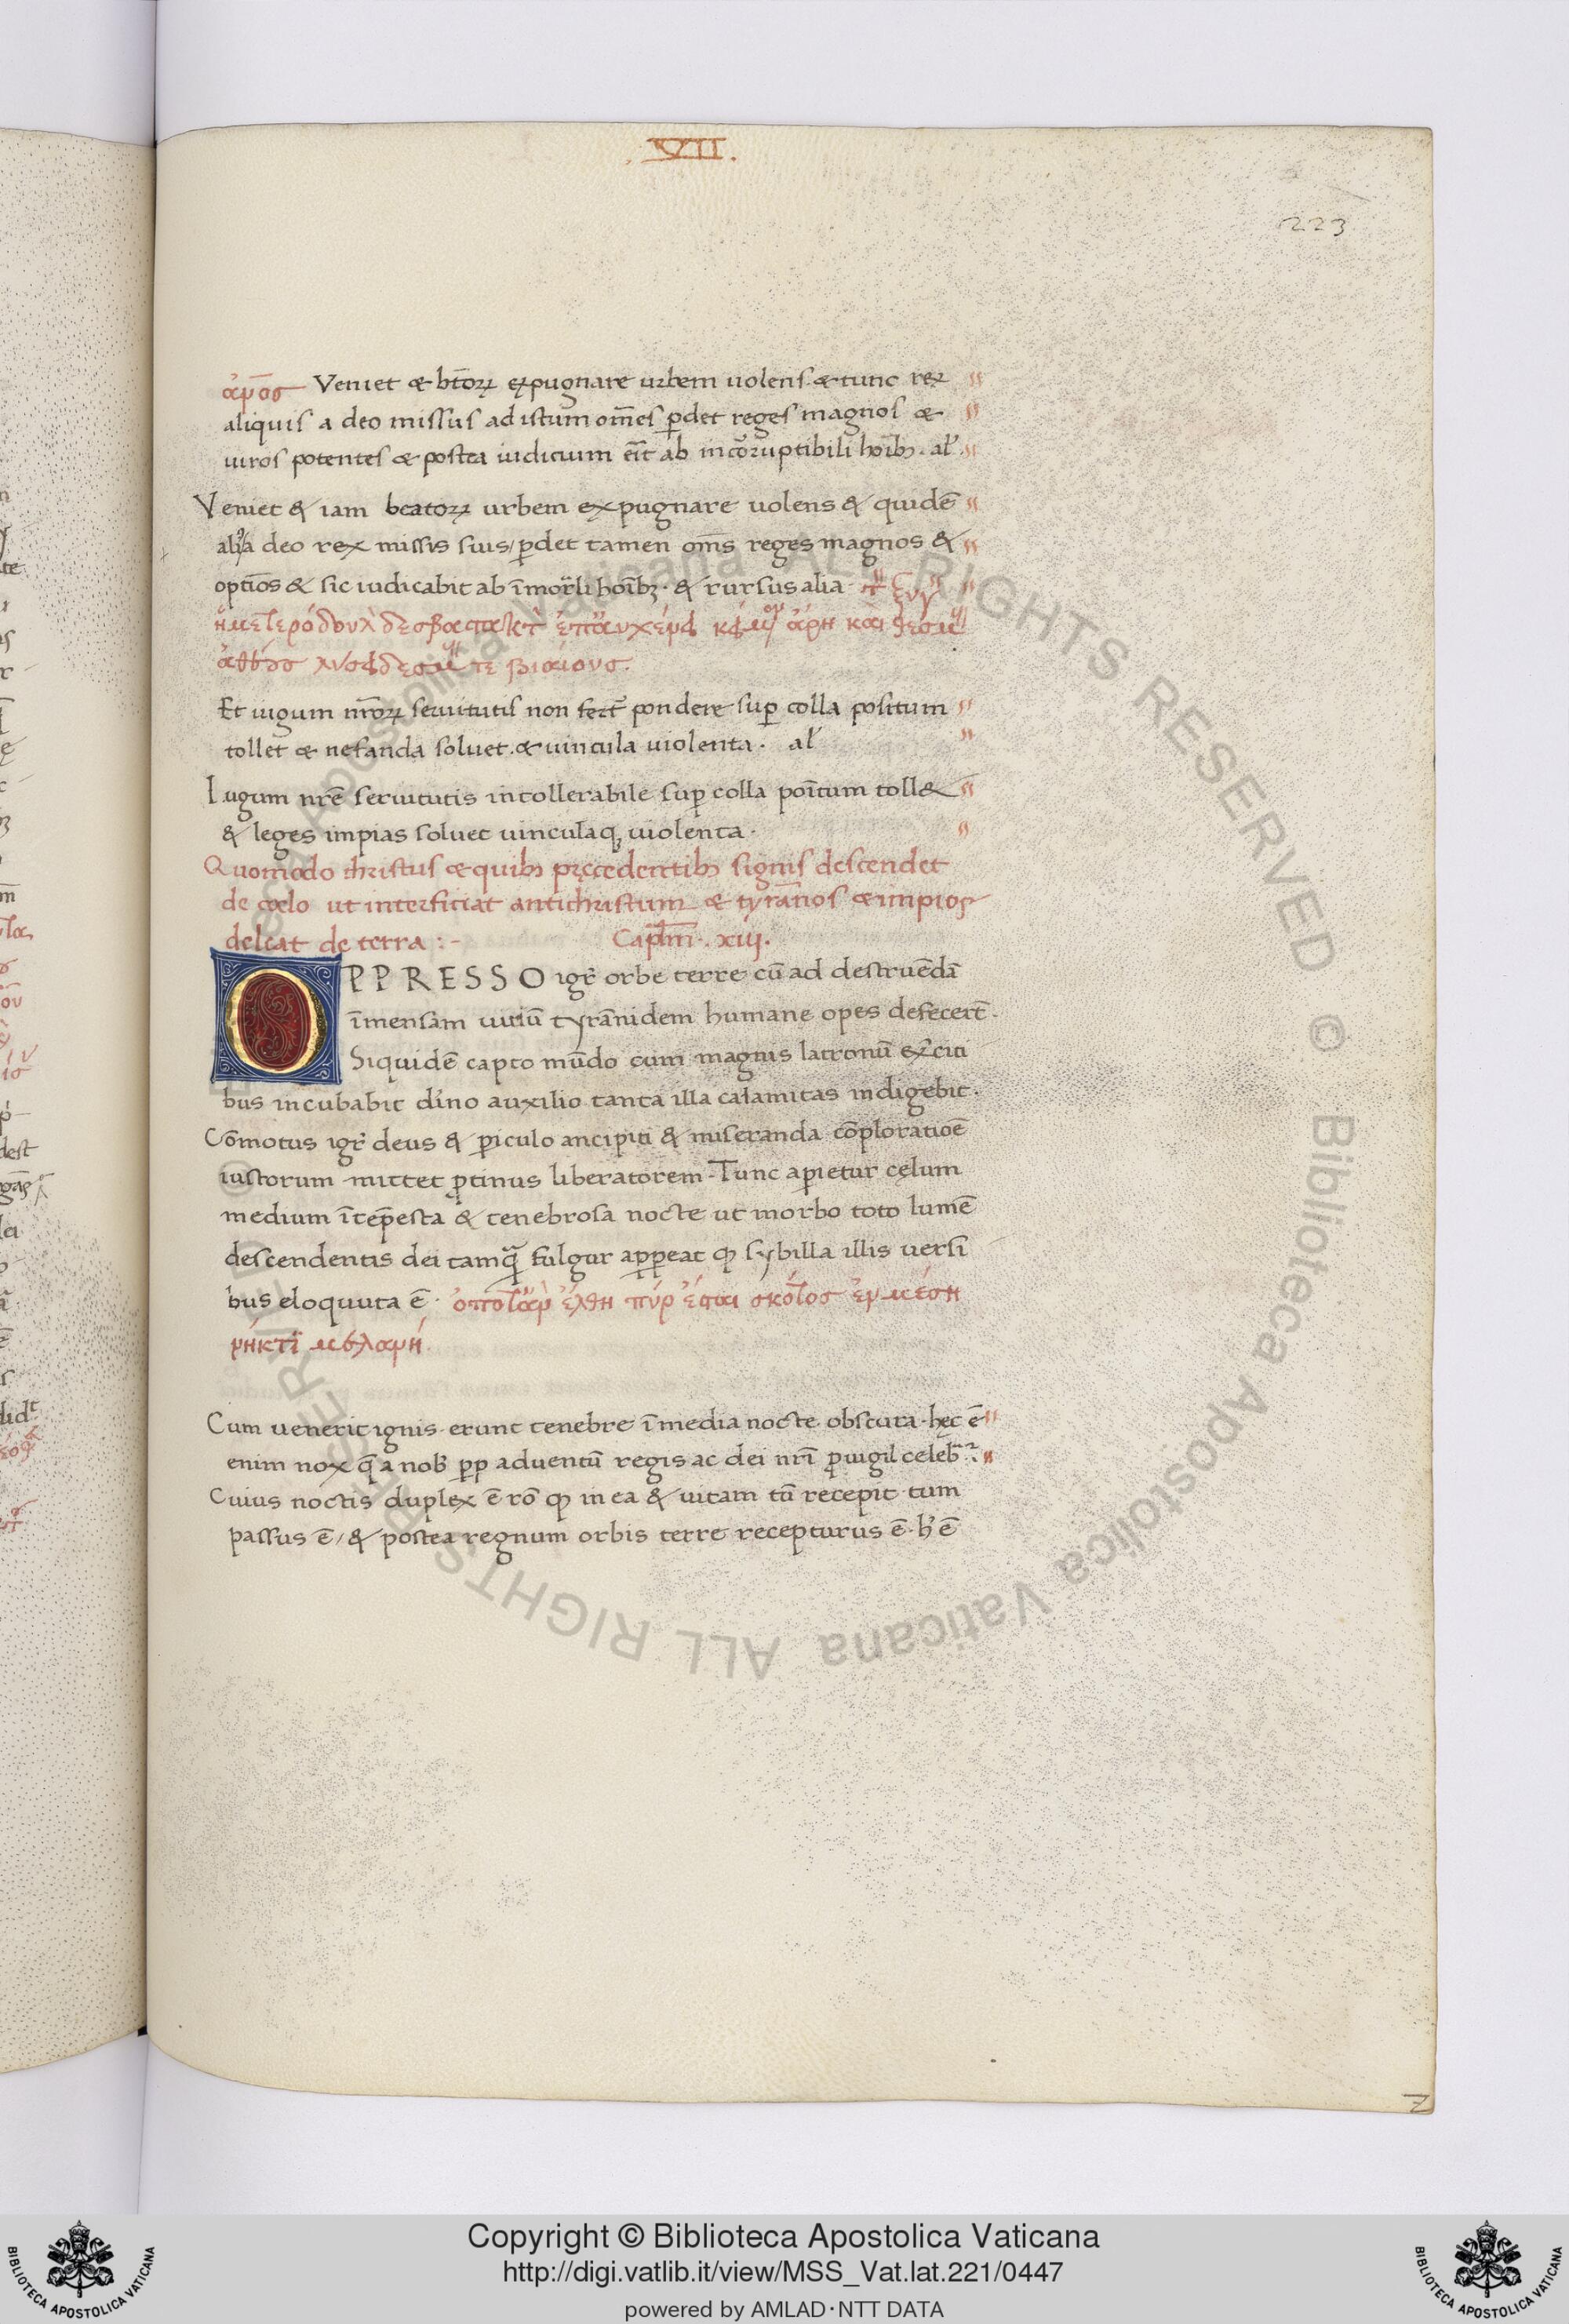 .VII.
223
Veniet & btoꝝ expugnare urbem uolens & tunc rex
aliquis a deo missus ad istum om̄es ꝑdet reges magnos &
uiros potentes & postea iudicium erit ab incorruptibili hoīb; . al'.
Veniet & iam beatoꝝ urbem expugnare uolens & quidē
a deo rex missis suis / ꝑdet tamen om̄s reges magnos &
optīos & sic iudicabit ab īmor̄li hoīb; . & rursus alia
Et iugum nr̄oꝝ seruitutis non pondere suꝑ colla positum
tollet & nefanda soluet . & uincula uiolenta . al'
Iugum nrē seruitutis intollerabile suꝑ colla poītum toll&
& leges impias soluet uinculaq; uiolenta .
Quomodo christus & quib; pręcedentib; signis descendet
de cœlo ut interficiat antichristum & tyrānos & impios
deleat de terra : - Capl̄m . xiij.
OPPRESSO igr̄ orbe terre cū ad destruēdā
īmensam uiriū tyrānidem humane opes defecerīt .
Siquidē capto mūdo cum magnis latronū ex̄citi
bus incubabit dīno auxilio tanta illa calamitas indigebit .
Cōmotus igr̄ deus & ꝑiculo ancipiti & miseranda cōploratioē
iustorum mittet ꝓtinus liberatorem . Tunc aꝑietur cęlum
medium ītēpesta & tenebrosa nocte ut morbo toto lumē
descendentis dei tamq̄ fulgur apꝑeat ꝙ sybilla illis uersi
bus eloquuta ē . ὁποταρ ἔλθη πύρ ἔσται σκότος ἐμ μέση
νηκτι μελαινη
Cum uenerit ignis erunt tenebre ī media nocte obscura . hęc ē
enim nox q̄ a nob' ꝓp aduentū regis ac dei nrī ꝑuigil celeb
Cuius noctis duplex ē rō ꝙ in ea & uitam tū recepit tum
passus ē / & postea regnum orbis terre recepturus ē . h' ē
Z
Copyright © Biblioteca Apostolica Vaticana
http://digi.vatlib.it/view/MSS_Vat.lat.221/0447
powered by AMLAD·NTT DATA
BIBLIOTECA APOSTOLICA VATICANA
BIBLIOTECA APOSTOLICA VATICANA
© Biblioteca Apostolica Vaticana ALL RIGHTS RESERVED © Biblioteca Apostolica Vaticana ALL RIGHTS RESERVED